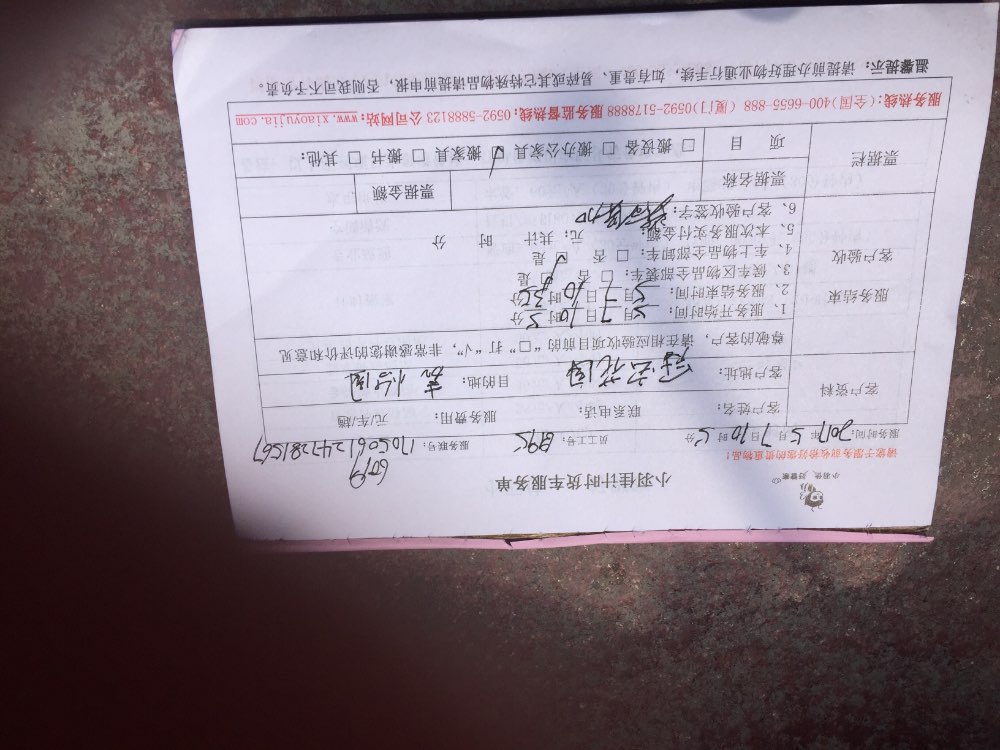 小羽佳 好管家
小羽佳计时货车服务单
6079
请您于服务前收拾好您的贵重物品!
服务时间: 2017年5月7日10时5分 员工号: B95 服务联号: 1705061247281567
客户资料
客户姓名: 联系电话: 服务费用: 元/车/趟
客户地址: 花园 目的地:
服务结束 客户验收
尊敬的客户,请在相应验收项目前的“□”打“√”,非常感谢您的评价和意见
1、服务开始时间: 5月7日10时5分
2、服务结束时间: 5月7日10时35分
3、候车区物品全部装车: □ 否 □ 是
4、车上物品全部卸车: □ 否 □ 是
5、本次服务实付金额: 元; 共计 时 分
6、客户验收签字:
票据栏
票据名称 票据金额
项目 □ 搬设备 □ 搬办公家具 □ 搬家具 □ 搬书 □ 其他:
服务热线:(全国)400-6655-888 (厦门)0592-5178888 服务监督热线:0592-5888123 公司网站:www.xiaoyujia.com
温馨提示: 请提前办理好物业通行手续,如有贵重、易碎或其它特殊物品请提前申报,否则我司不予负责。